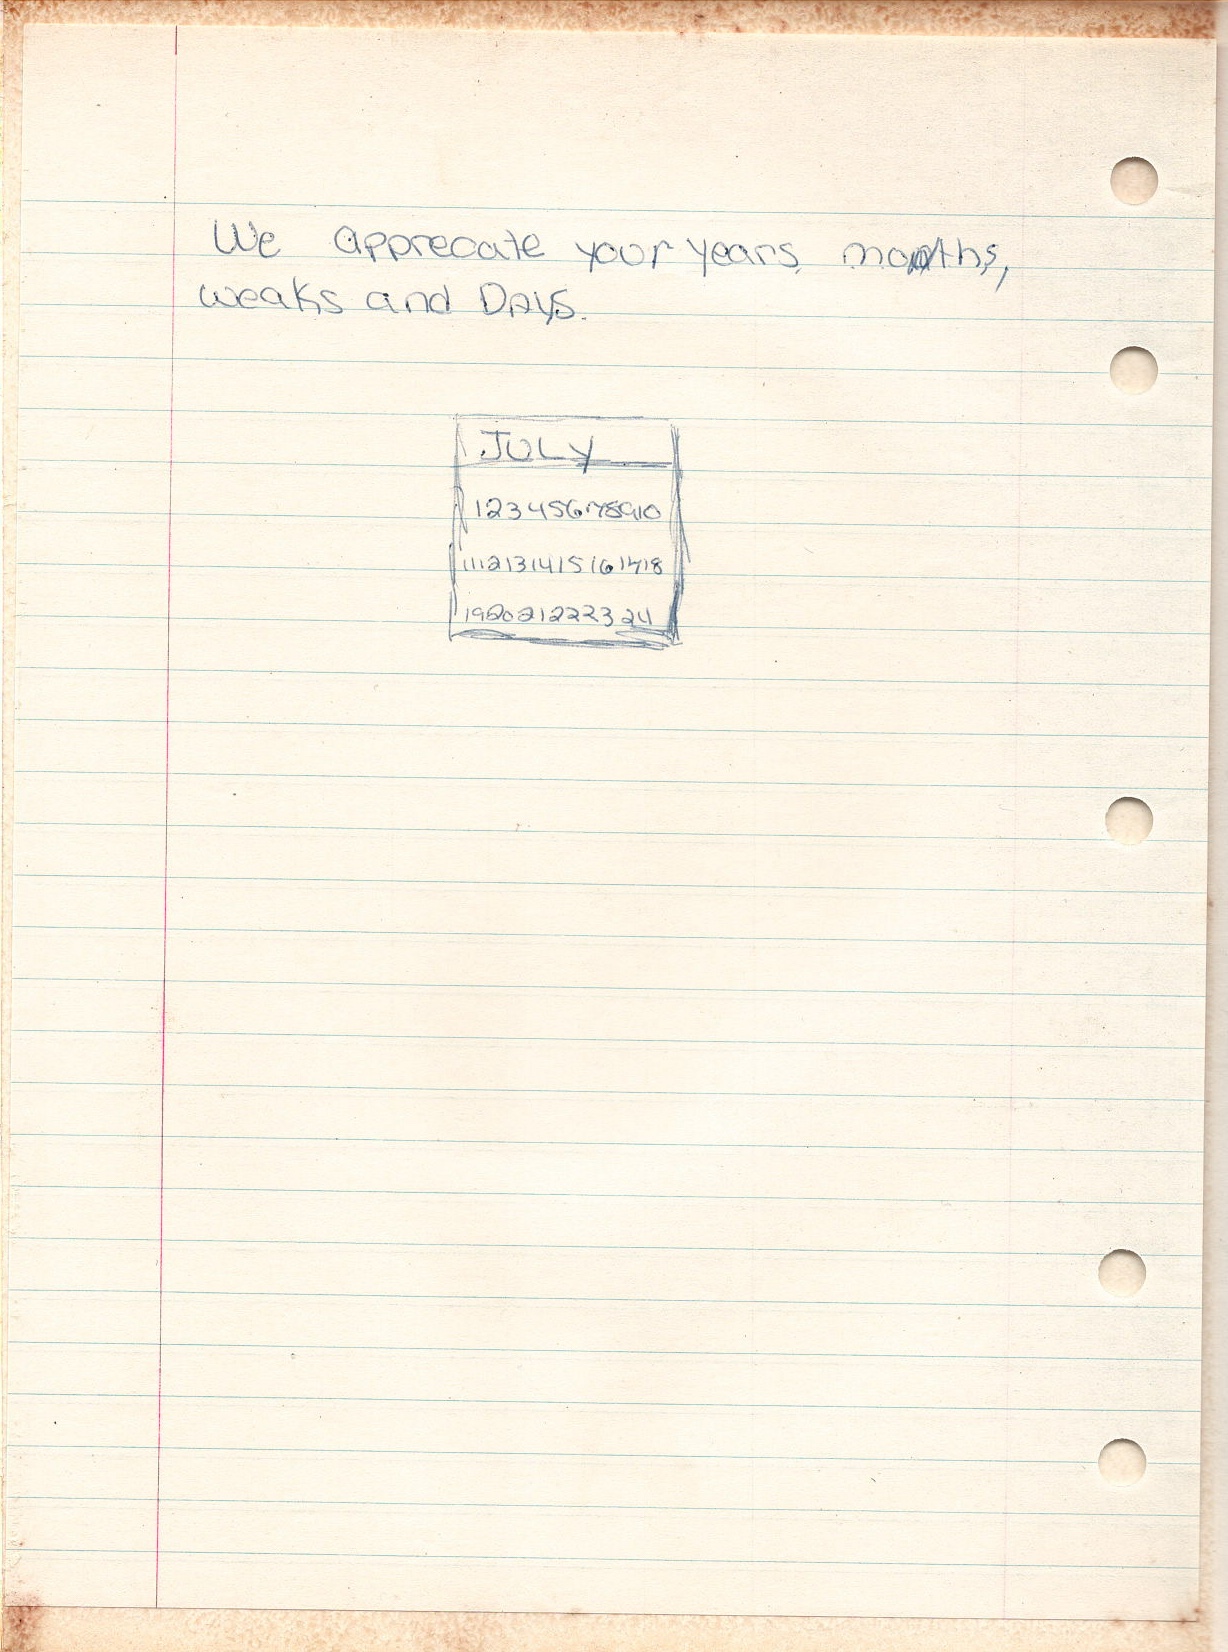 We apprecate your years, months,
weaks and Days.
JULY
12345678910
1112131415161718
192021222324